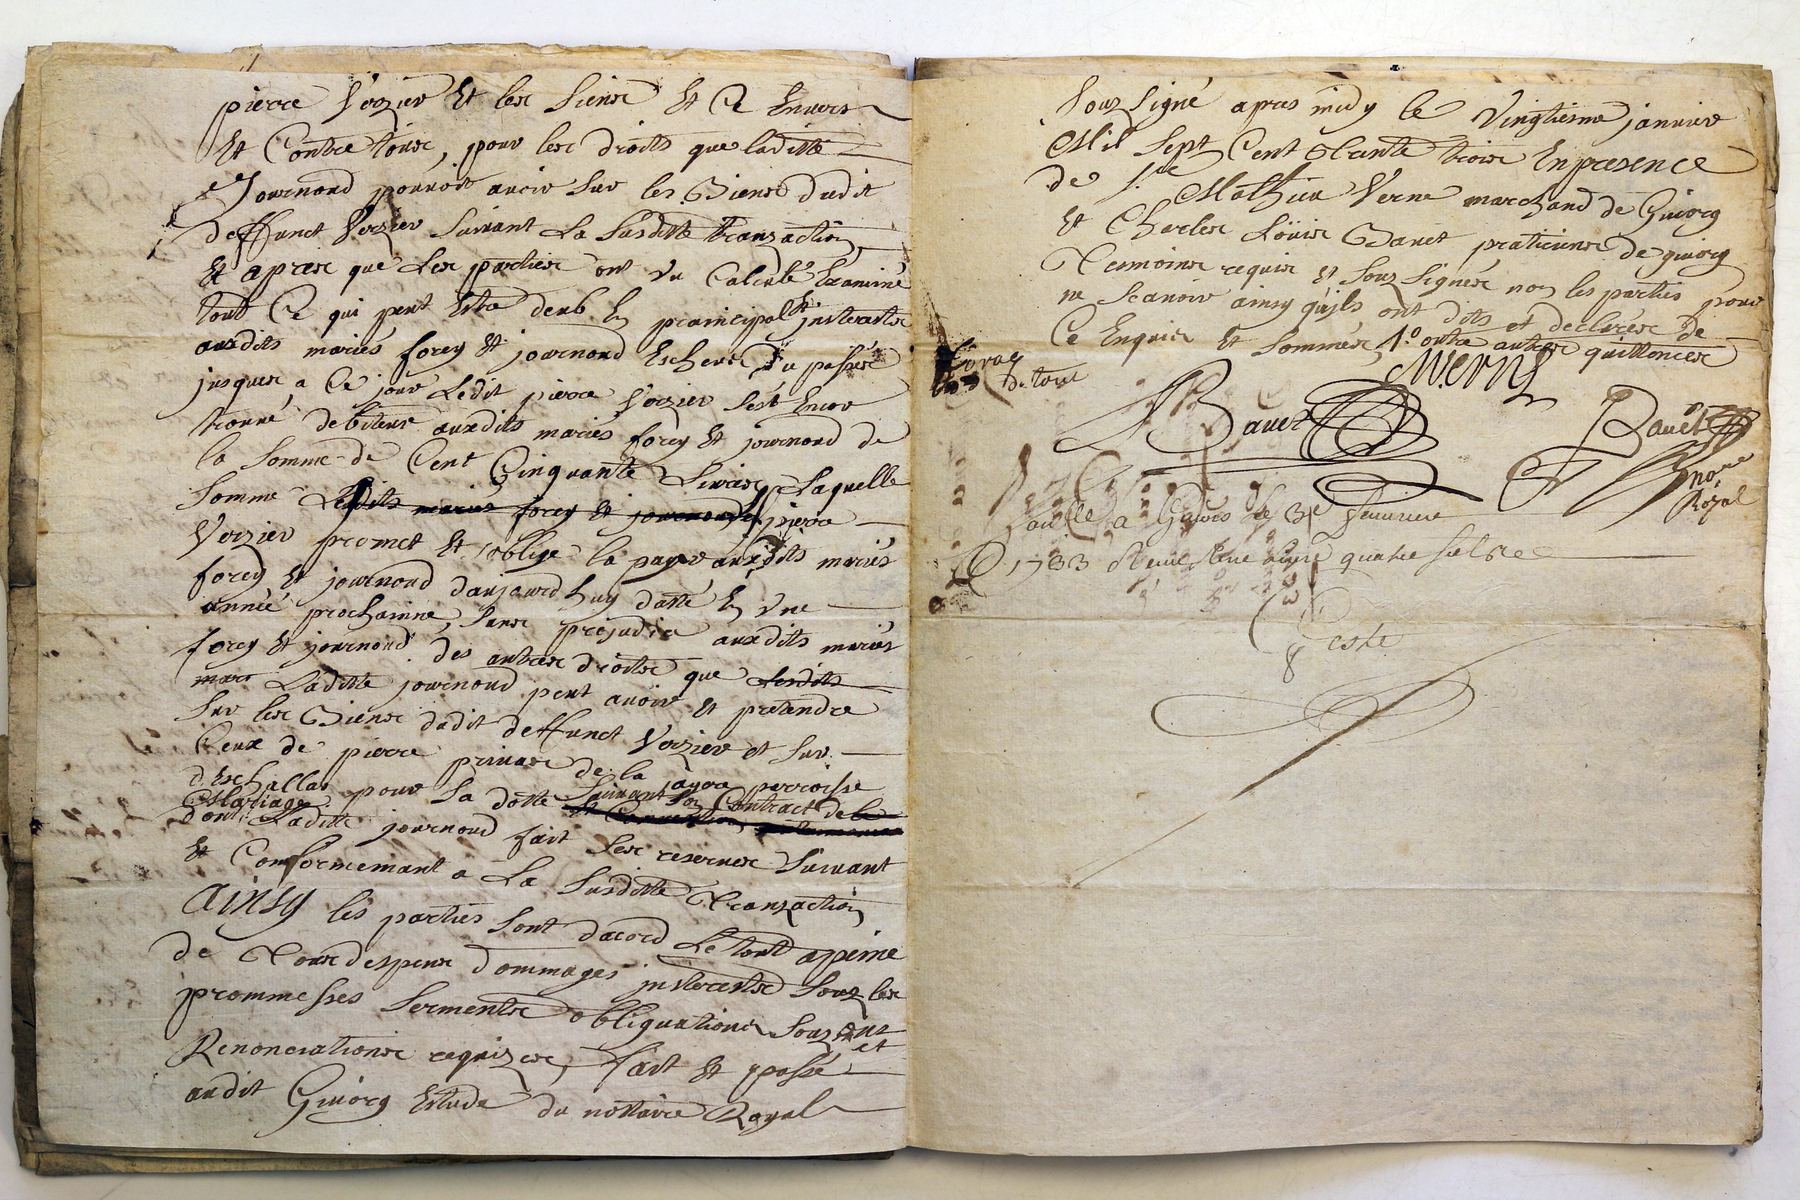 pierre Verzier Et les siens Et Ce Envers
Et Contre tous, pour les droits que laditte
Journond pourroit avoir sur les Biens dudit
deffunct Verzier suivant La susditte transaction
Et apres que Les parties ont vu Calculé Examiné
tout Ce qui peut Estre deub En principal Et interests
auxdits mariés forey Et journond Escheus du passés
jusques a Ce jour Ledit pierre Verzier s'est Encor
trouvé debiteur auxdits mariés forey Et journond de
la somme de Cent Cinquante Livres, Laquelle
somme Lesdits mariés forey Et journond pierre
Verzier promet Et oblige la payer auxdits mariés
forey Et journond daujourdhuy datte En Une
année prochaine, sans prejudice auxdits mariés
forey Et journond des autres droits que lesdits
Laditte journond peut avoir Et pretendre
sur les Biens dudit deffunct Verzier et sur
Ceux de pierre de la parroisse
d'Eschallas pour sa dotte suivant son Contract de
Mariage
dont Laditte journond fait ses reserves suivant
Et Conformemant a La susditte Transaction
Ainsy les parties sont dacord Le tout a peine
de Tous despens dommages interests sous les
prommesses serments obligations sous et
Renonciations requizes, fait Et passé
audit Givors Estude du nottaire Royal
sous signé apres midy le Vingtiesme janvier
Mil sept Cent trente trois En presence
de Sr Mathieu Verne marchand de Givors
Et Charles Louis Bavet praticiens de givors
Tesmoins requis Et sous signés non les parties pour
ne scavoir ainsy quils ont dits et declarés de
Ce Enquis Et sommés, outre autres quittances
du tout
M. Verne
Bavet
Bavet
nore
Royal
a Givors le 3e fevrier
1733 Reçu livre quatre sols
Teste